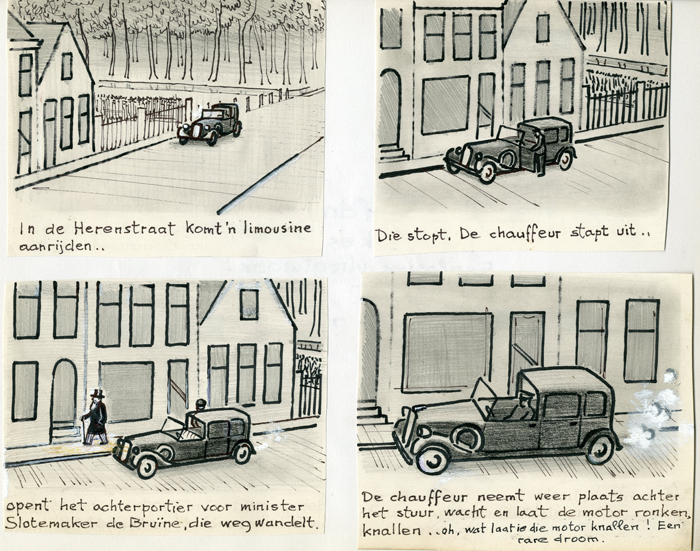 In de Herenstraat komt 'n limousine
aanrijden..
Die stopt. De chauffeur stapt uit..
opent het achterportier voor minister
Slotemaker de Bruïne, die weg wandelt.
De chauffeur neemt weer plaats achter
het stuur, wacht en laat de motor ronken,
knallen .. oh, wat laat ie die motor knallen! Een
rare droom.